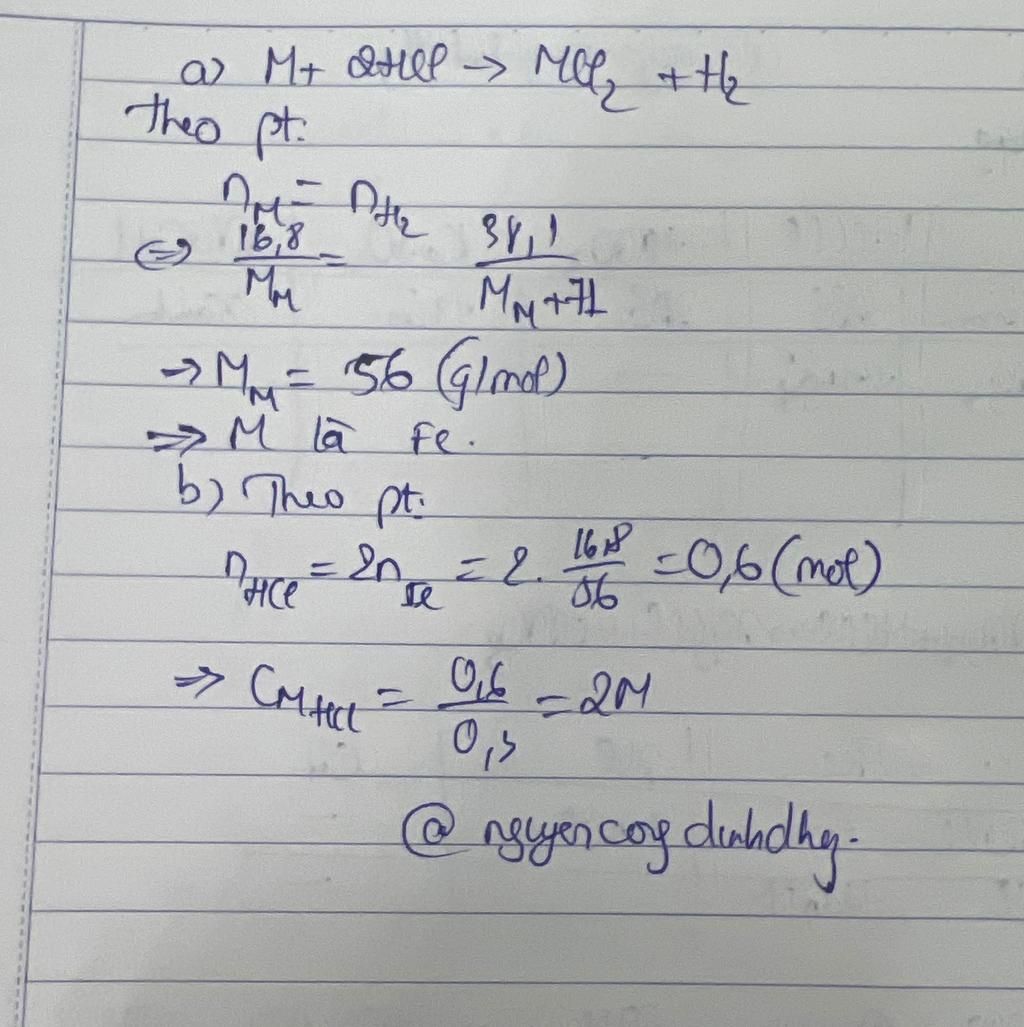 a) M + 2HCl → MCl₂ + H₂
Theo pt:
n_M = n_H₂
⇔ 16,8/M_M = 38,1/(M_M + 71)
→ M_M = 56 (g/mol)
⇒ M là Fe.
b) Theo pt:
n_HCl = 2n_Fe = 2. 16,8/56 = 0,6 (mol)
⇒ C_M HCl = 0,6/0,3 = 2M
@